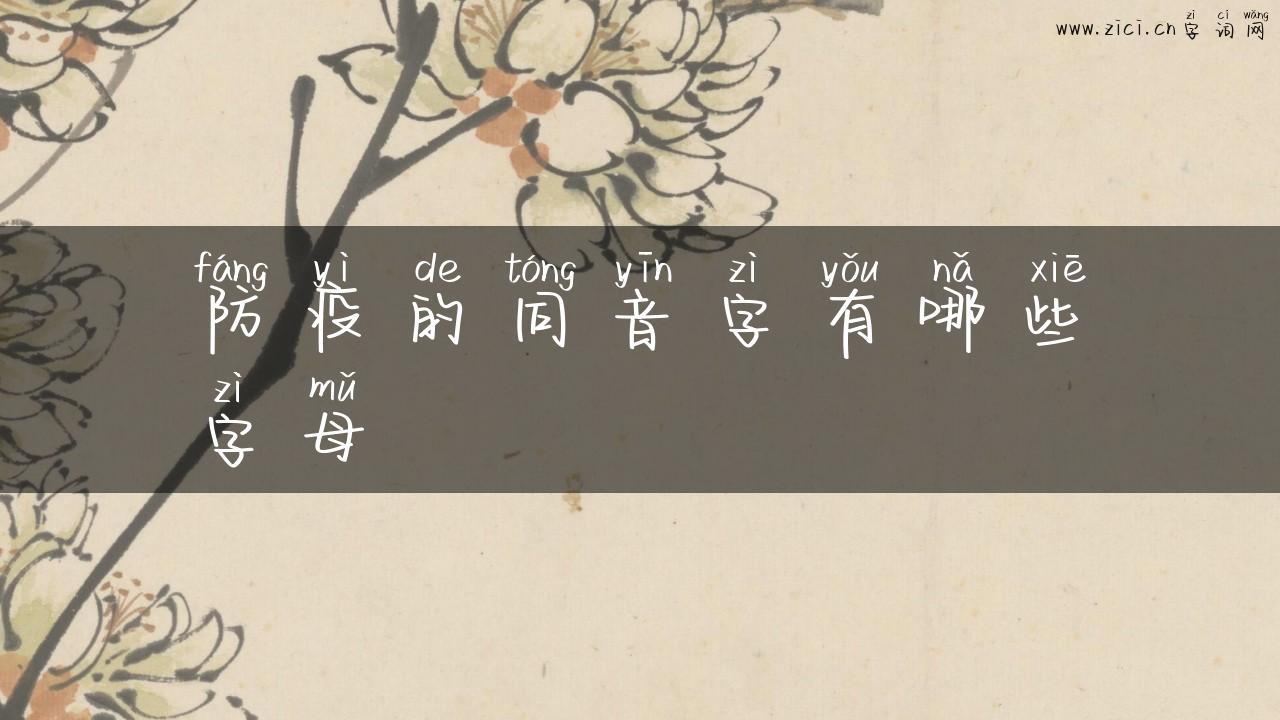 zì cí wǎng
www.zici.cn 字词网
fáng yì de tóng yīn zì yǒu nǎ xiē
防疫的同音字有哪些
zì mǔ
字母